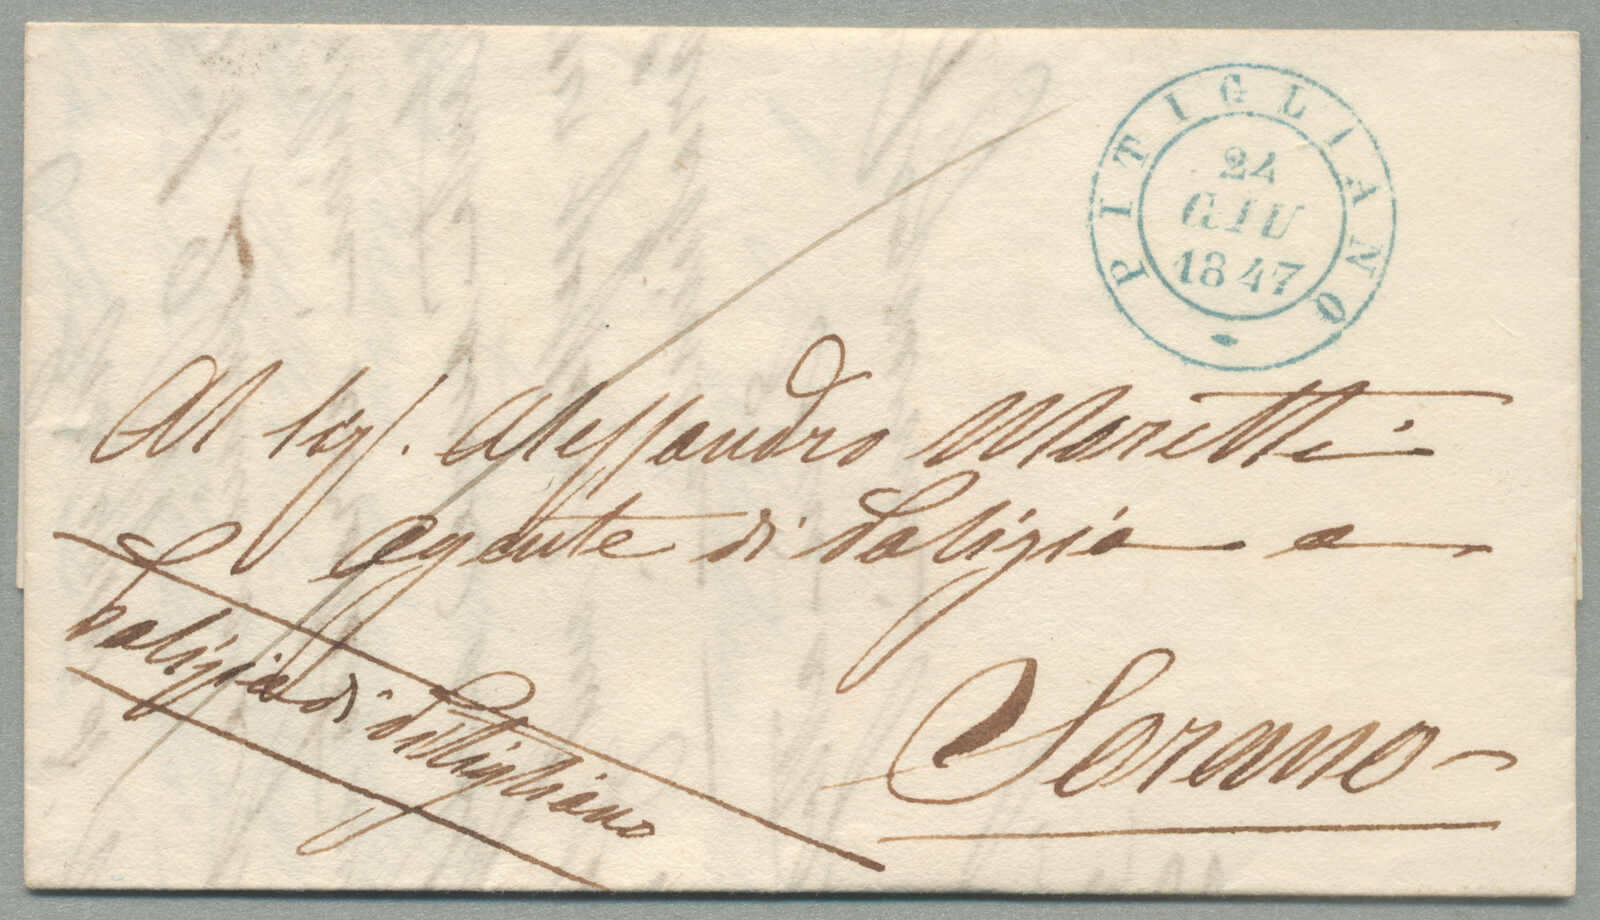 PITIGLIANO
24
GIU
1847
Al Sig. Alessandro Moretti
Agente di Polizia a
Sorano
Polizia di Pittigliano